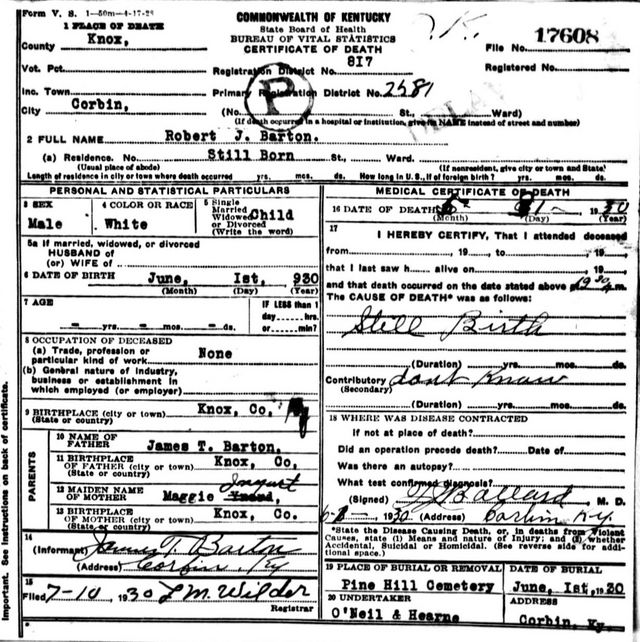 Form V. S. 1-50m-4-17-28
COMMONWEALTH OF KENTUCKY
State Board of Health
BUREAU OF VITAL STATISTICS
CERTIFICATE OF DEATH
File No. 17608
1 PLACE OF DEATH
County Knox,
Registered No.
Vot. Pct.
Registration District No. 817
Inc. Town
Primary Registration District No. 2581
P
City Corbin, (No. St., Ward)
(If death occurred in a hospital or institution, give its NAME instead of street and number)
2 FULL NAME Robert J. Barton.
(a) Residence. No. Still Born St., Ward.
(Usual place of abode) (If nonresident, give city or town and State)
Length of residence in city or town where death occurred yrs. mos. ds. How long in U. S., if of foreign birth? yrs. mos. ds.
PERSONAL AND STATISTICAL PARTICULARS
3 SEX Male
4 COLOR OR RACE White
5 Single Married Widowed or Divorced (Write the word) Child
5a If married, widowed, or divorced
HUSBAND of
(or) WIFE of
6 DATE OF BIRTH June, Ist, 930
(Month) (Day) (Year)
7 AGE
- yrs. - mos. - ds.
IF LESS than 1
day----hrs.
or------min?
8 OCCUPATION OF DECEASED
(a) Trade, profession or
particular kind of work None
(b) General nature of industry,
business or establishment in
which employed (or employer)
9 BIRTHPLACE (city or town) Knox, Co. Ky
(State or country)
PARENTS
10 NAME OF
FATHER James T. Barton.
11 BIRTHPLACE
OF FATHER (city or town) Knox, Co.
(State or country)
12 MAIDEN NAME
OF MOTHER Maggie
13 BIRTHPLACE
OF MOTHER (city or town) Knox, Co.
(State or country)
14
(Informant) James T. Barton
(Address) Corbin Ky
15
Filed 7-10 1930 L M. Wilder
Registrar
MEDICAL CERTIFICATE OF DEATH
16 DATE OF DEATH 1930
(Month) (Day) (Year)
17
I HEREBY CERTIFY, That I attended deceased
from , 19 , to , 19
that I last saw h alive on , 19
and that death occurred on the date stated above at m.
The CAUSE OF DEATH* was as follows:
Still Birth
(Duration) yrs. mos. ds.
Contributory dont Know
(Secondary)
(Duration) yrs. mos. ds.
18 WHERE WAS DISEASE CONTRACTED
If not at place of death?
Did an operation precede death? Date of
Was there an autopsy?
What test confirmed diagnosis?
(Signed) Ballard M. D.
1930 (Address) Corbin Ky.
*State the Disease Causing Death, or, in deaths from Violent
Causes, state (1) Means and nature of Injury; and (2) whether
Accidental, Suicidal or Homicidal. (See reverse side for addi-
tional space.)
19 PLACE OF BURIAL OR REMOVAL
Pine Hill Cemetery
DATE OF BURIAL
June, Ist, 1930
20 UNDERTAKER
O'Neil & Hearne
ADDRESS
Corbin, Ky.
Important. See instructions on back of certificate.